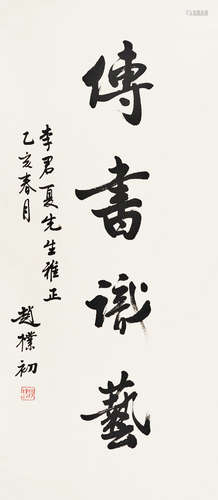 傳書識藝
李君夏先生雅正
乙亥春月
趙樸初